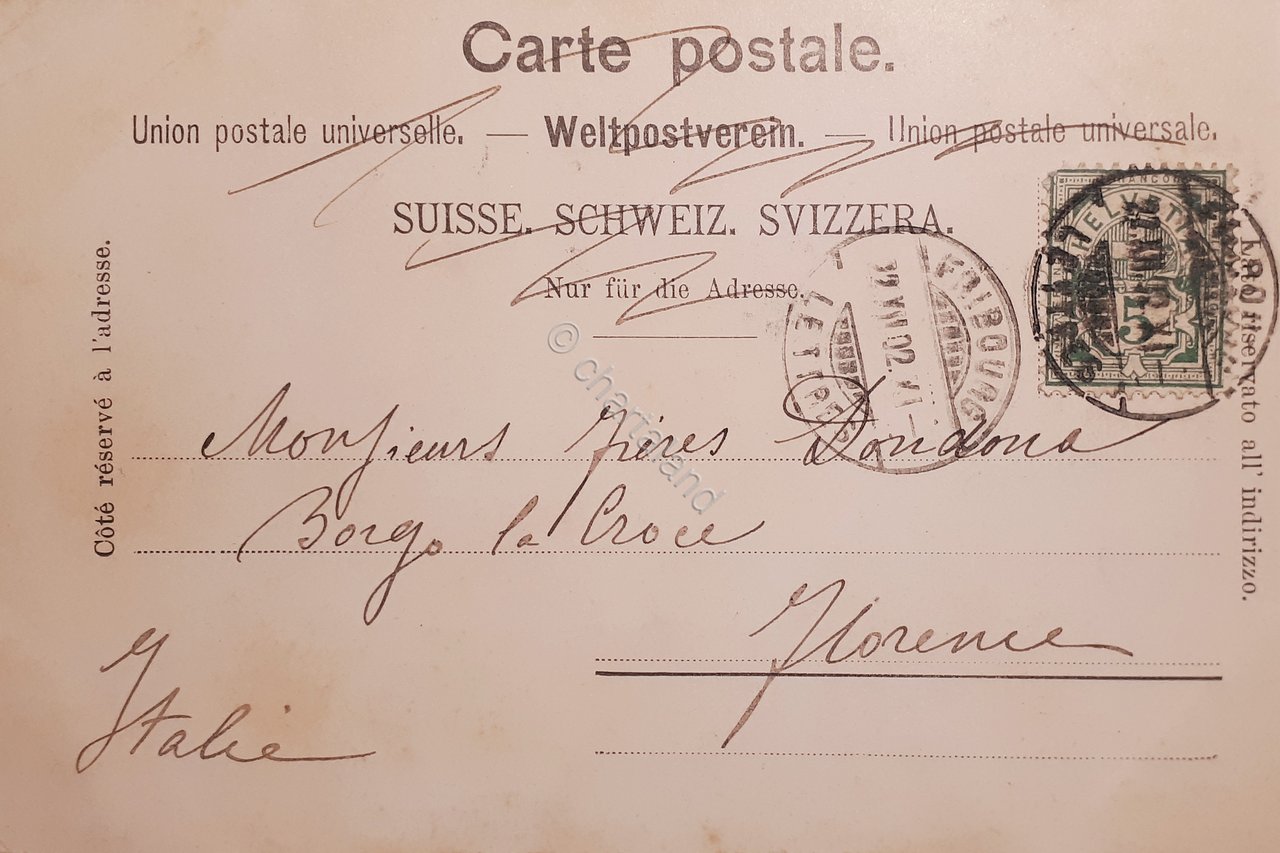 Carte postale.
Union postale universelle. — Weltpostverein. — Union postale universale.
SUISSE. SCHWEIZ. SVIZZERA.
Nur für die Adresse.
Côté réservé à l'adresse.
Lato riservato all' indirizzo.
HELVETIA
FRANCO
5
FRIBOURG
VII.02.VI
LETTRES
© chartaland
Monsieurs Frères Dondona
Borgo la Croce
Florence
Italie